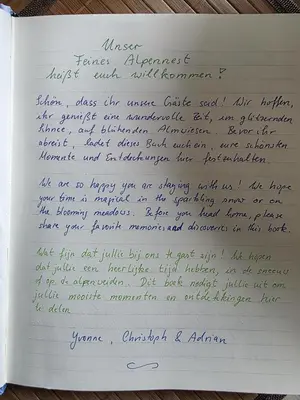 Unser
Feines Alpennest
heißt euch willkommen!
Schön, dass ihr unsere Gäste seid! Wir hoffen,
ihr genießt eine wundervolle Zeit, im glitzernden
Schnee, auf blühenden Almwiesen. Bevor ihr
abreist, ladet dieses Buch euch ein, eure schönsten
Momente und Entdeckungen hier festzuhalten.
We are so happy you are staying with us! We hope
your time is magical in the sparkling snow or on
the blooming meadows. Before you head home, please
share your favorite memories and discoveries in this book.
Wat fijn dat jullie bij ons te gast zijn! We hopen
dat jullie een heerlijke tijd hebben, in de sneeuw
of op de alpenweiden. Dit boek nodigt jullie uit om
jullie mooiste momenten en ontdekkingen hier
te delen.
Yvonne, Christoph & Adrian